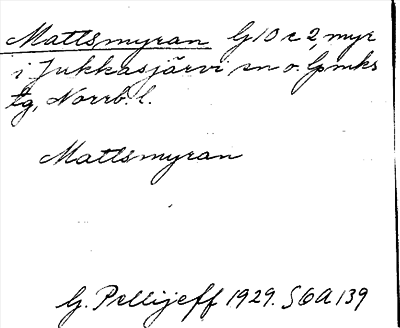 Mattsmyran G 10 c 2, myr
i Jukkasjärvi sn o. lpmks
tg, Norrb. l.
Mattsmyran
G. Pellijeff 1929. S6A 139